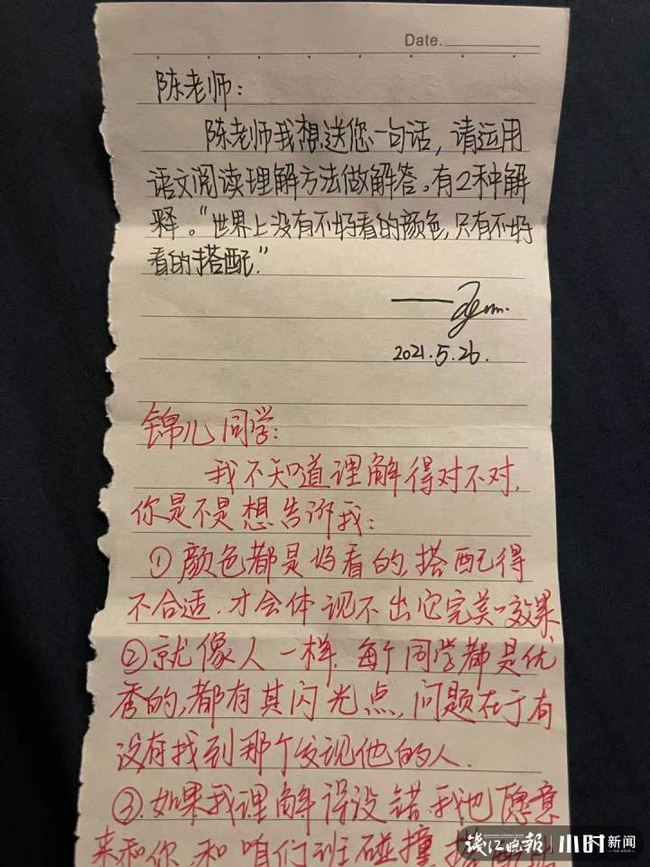 Date.
陈老师：
陈老师我想送您一句话，请运用
语文阅读理解方法做解答。有2种解
释。“世界上没有不好看的颜色，只有不好
看的搭配。”
2021.5.26.
锦儿同学：
我不知道理解得对不对，
你是不是想告诉我：
①颜色都是好看的，搭配得
不合适，才会体现不出它完美效果
②就像人一样，每个同学都是优
秀的，都有其闪光点，问题在于有
没有找到那个发现他的人.
③.如果我理解得没错，我也愿意
来和你、和咱们班碰撞
钱江晚报 小时新闻